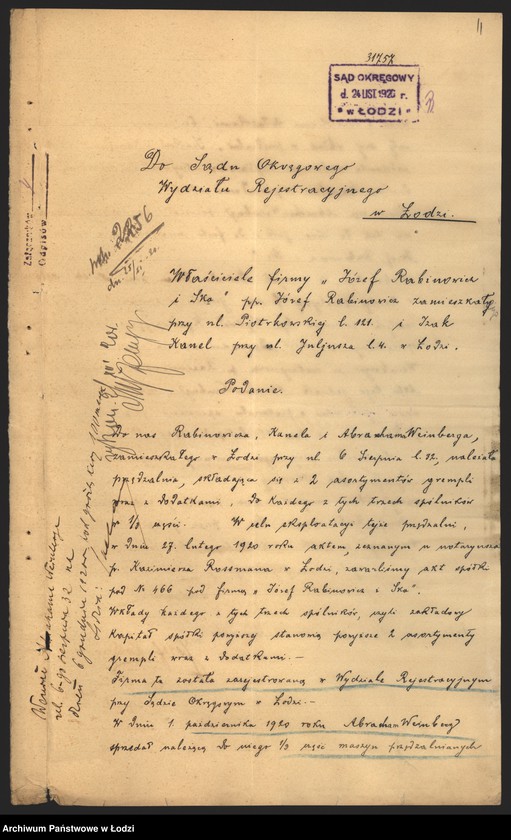 11
31757
SĄD OKRĘGOWY
d. 24 LIST. 1920 r.
* w ŁODZI *
Do Sądu Okręgowego
Wydziału Rejestracyjnego
w Łodzi.
Załączników
Odpisów
Właściciele firmy „Józef Rabinowicz
i Ska" pp. Józef Rabinowicz zamieszkały
przy ul. Piotrkowskiej l. 121. i Izak
Kanel przy ul. Juljusza l. 4. w Łodzi.
Podanie.
nas Rabinowicza, Kanela i Abrahama Weinberga,
zamieszkałego w Łodzi przy ul. 6 Sierpnia l. 32, należała
przędzalnia, składająca się z 2 asortymentów grempli
wraz z dodatkami, do każdego z tych trzech spólników
w 1/3 części. W celu eksploatacji tejże przędzalni,
w dniu 27. lutego 1920 roku aktem, zeznanym u notarjusza
p. Kazimierza Rossmana w Łodzi, zawarliśmy akt spółki
pod № 466 pod firmą „Józef Rabinowicz i Ska".
Wkłady każdego z tych trzech spólników, czyli zakładowy
kapitał spółki powyższej stanowią powyższe 2 asortymenty
grempli wraz z dodatkami.—
Firma ta została zarejestrowaną w Wydziale Rejestracyjnym
przy Sądzie Okręgowym w Łodzi.—
W dniu 1 października 1920 roku Abraham Weinberg
sprzedał należącą do niego 1/3 część maszyn przędzalnianych
Wezwać Abrahama Weinberga
ul. 6-go sierpnia 32 na
dzień 6 grudnia 1920 r.
Archiwum Państwowe w Łodzi